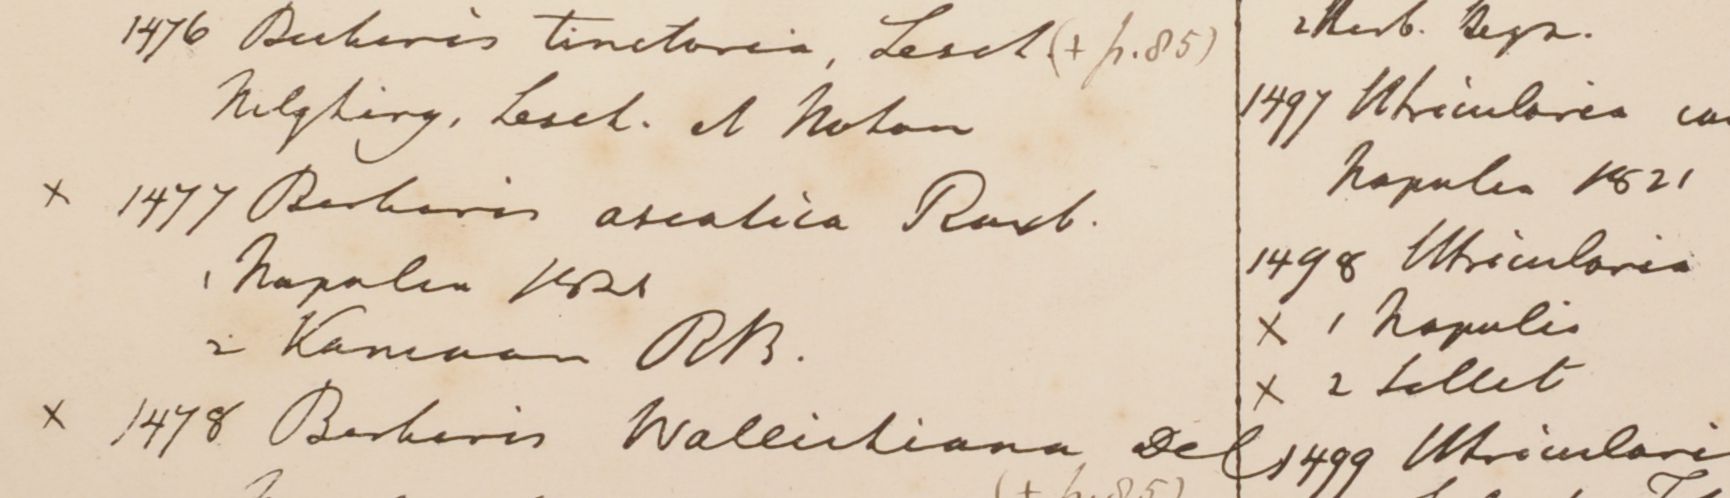 1476 Berberis tinctoria, Lesch. (+ p. 85)
Nilghiry, Lesch. et Noton
x 1477 Berberis asiatica Roxb.
1 Napalia 1821
2 Kamaoon RB.
x 1478 Berberis Wallichiana De
(+ p. 85)
2 Herb. Heyn.
1497 Utricularia
Napalia 1821
1498 Utricularia
x 1 Napalia
x 2 Sillet
1499 Utricularia